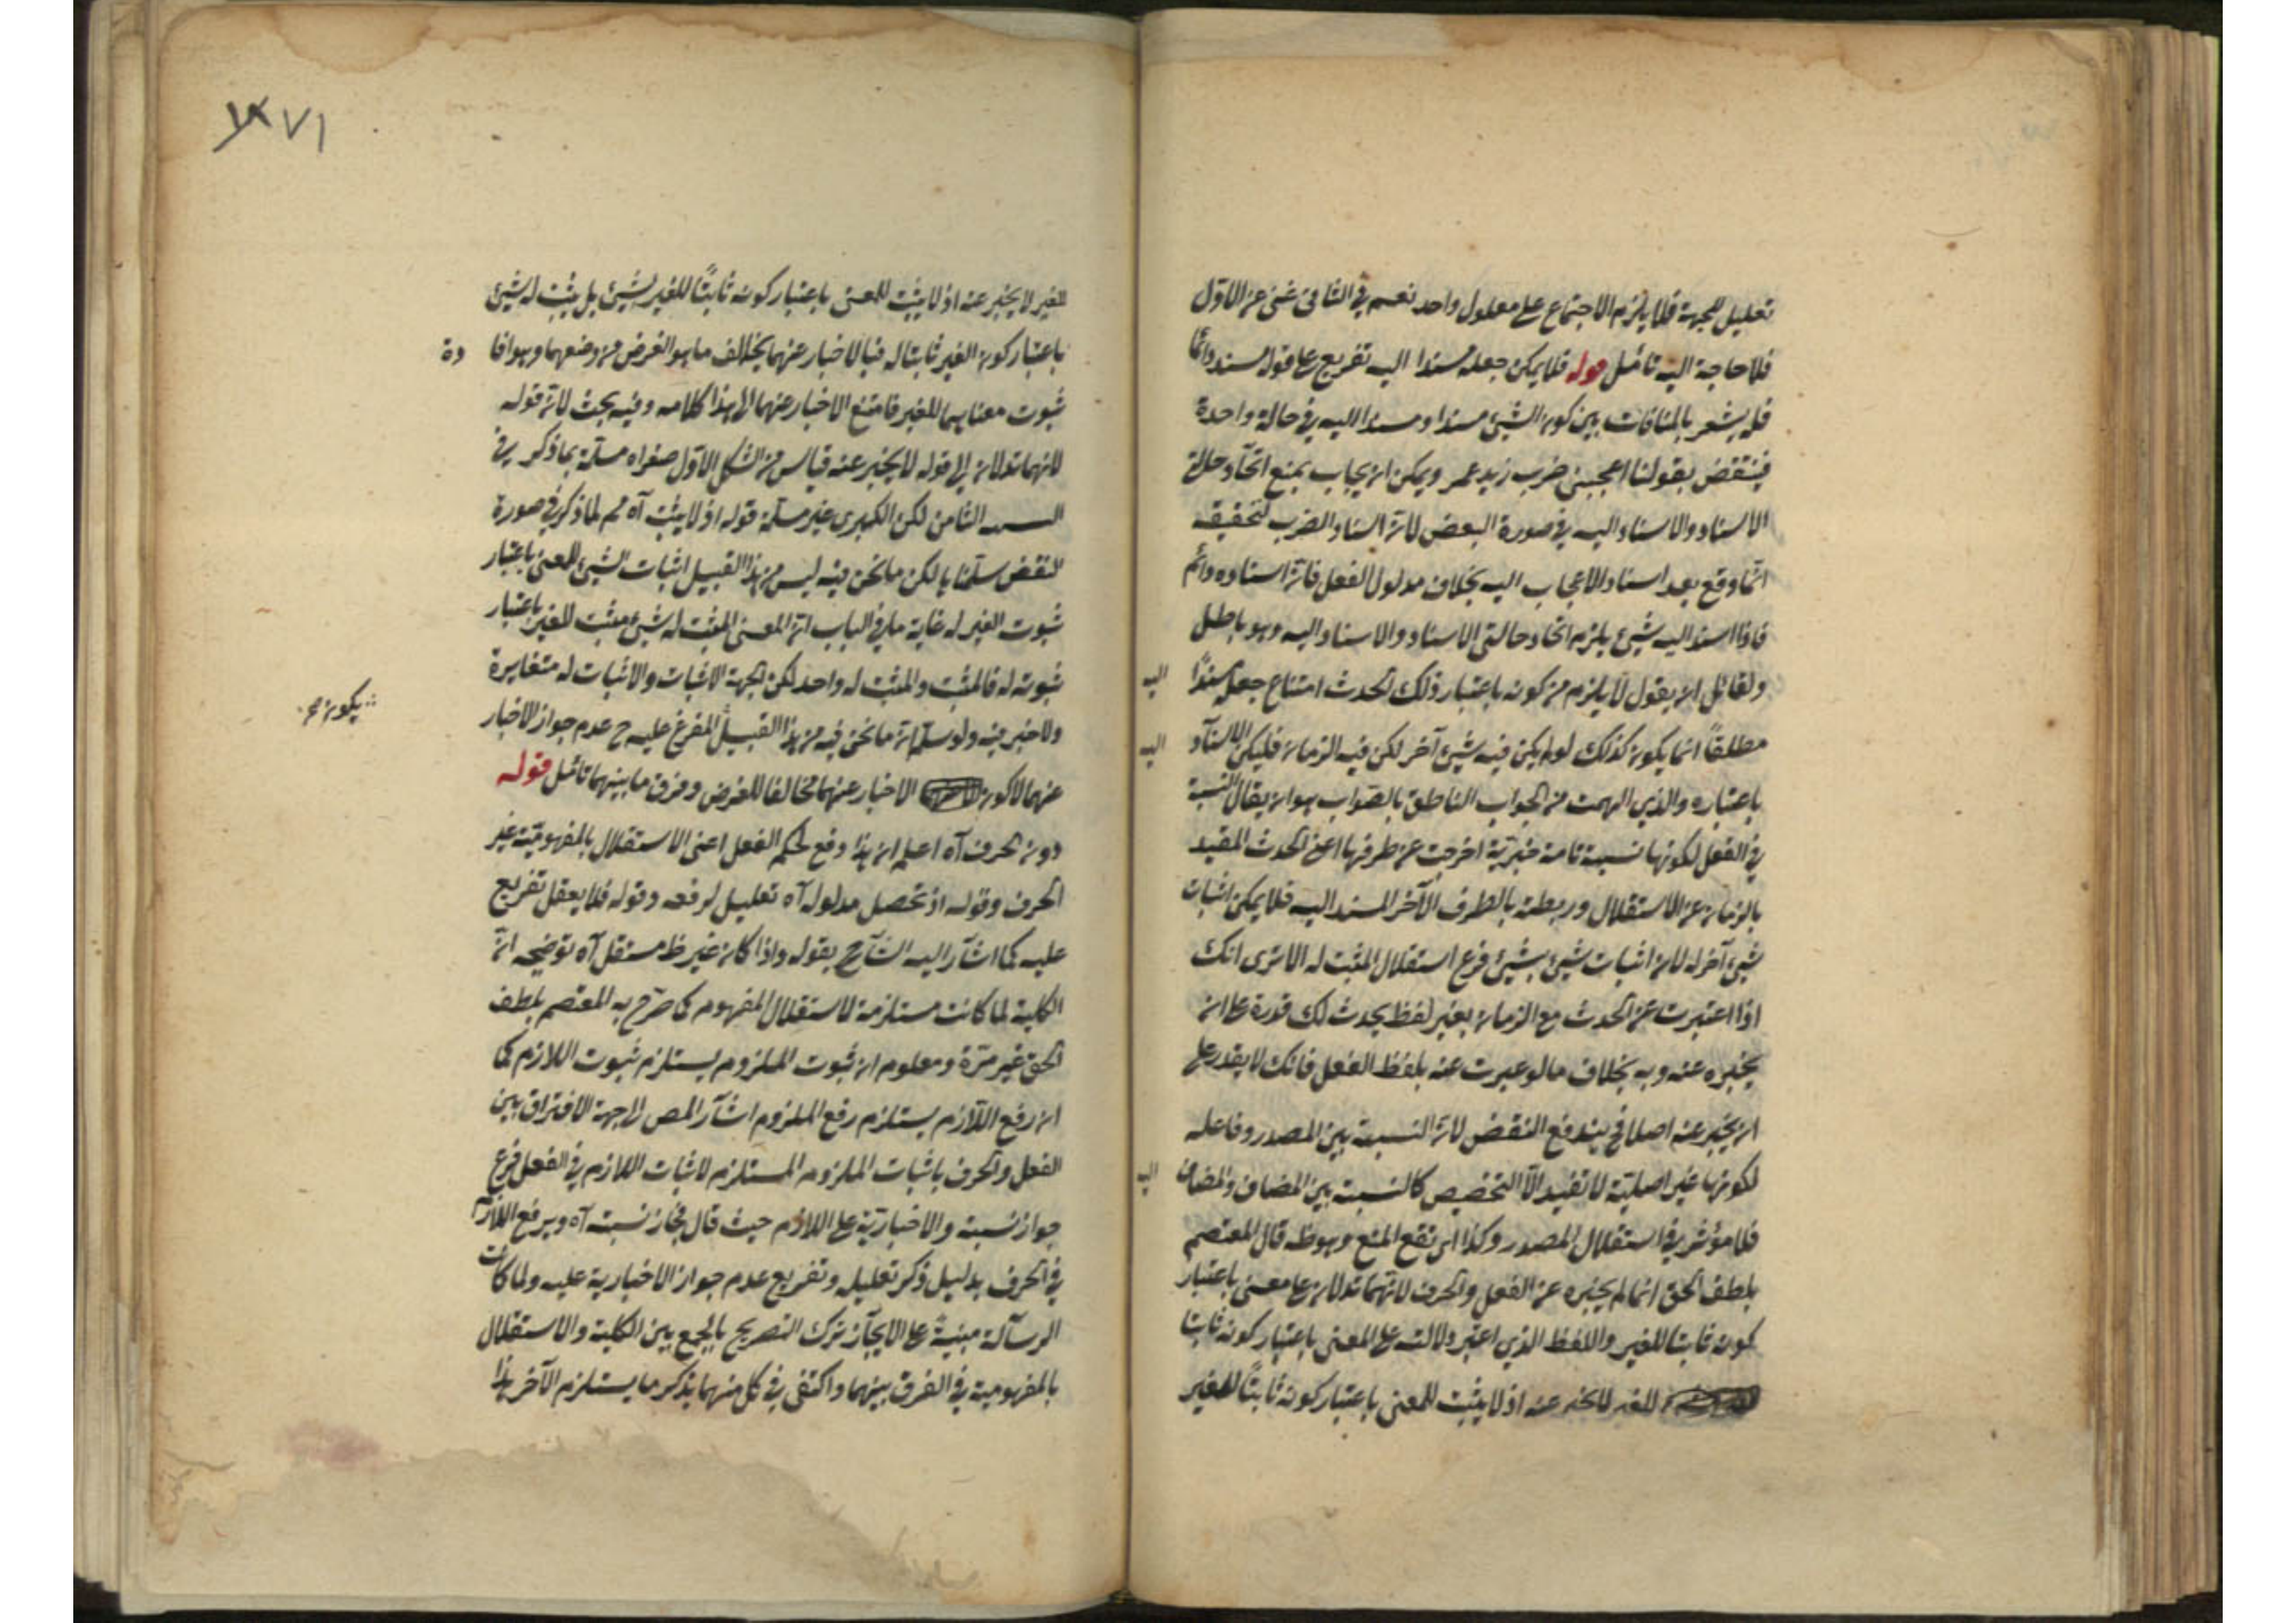 تعليل للجهة فلا يلزم الاجتماع على معلول واحد نعم في الثاني غنى عن الاوّل
فلا حاجة اليه تأمّل قوله فلا يمكن جعله مسندا اليه تفريع على قوله مسند دائما
فله يشعر بالمنافات بين كون الشيئ مسندا ومسندا اليه في حالة واحدة
فينتقض بقولنا اعجبني ضرب زيد عمر ويمكن ان يجاب بمنع اتحاد حالة
الاسناد والاسناد اليه في صورة البعض لانّ اسناد الضرب
انّما وقع بعد اسناد الاعجاب اليه بخلاف مدلول الفعل فانّ اسناده دائم
فاذا اسند اليه شيئ يلزم اتحاد حالتي الاسناد والاسناد اليه وهو باطل
ولقائل ان يقول لا يلزم من كونه باعتبار ذلك الحدث امتناع جعله مسندًا اليه
مطلقًا انما يكون كذلك لو لم يكن فيه شيئ آخر لكن فيه الزمان فليكن الاسناد اليه
باعتباره والذي الهمت من الجواب الناطق بالصّواب هو ان يقال النسبة
في الفعل لكونها نسبة تامة خبريّة اخرجت عن طرفها اعني الحدث المقيد
بالزمان عن الاستقلال وربطته بالطرف الآخر المسند اليه فلا يمكن اثبات
شيئ آخر له لان اثبات شيئ بشيئ فرع استقلال المثبت له الا ترى انك
اذا اعتبرت عن الحدث مع الزمان بغير لفظ يحدث لك قدرة على ان
يخبره عنه وبه بخلاف ما لو عبرت عنه بلفظ الفعل فانك لا يقدر على
ان يخبر عنه اصلا في يندفع النقض لانّ النسبة بين المصدر وفاعله
لكونها غير اصليّة لا تفيد الّا التخصيص كالنسبة بين المضاف والمضاف اليه
فلا مؤثر في استقلال المصدر وكذا المنع وهو ظه قال المعتصم
بلطف الحق انما لم يخبره عن الفعل والحرف لانّهما تدلان على معنى باعتبار
كونه ثابتا للغير واللفظ الذي اعتبر دلالته على المعنى باعتبار كونه ثابتا
للغير لا يخبر عنه اذ لا يثبت للمعنى باعتبار كونه ثابتًا للغير
٧١
للغير لا يخبر عنه اذ لا يثبت للمعنى باعتبار كونه ثابتًا للغير لشيئ بل يثبت له شيئ
باعتبار كون الغير ثابتا له فبالاخبار عنهما يخالف ما هو الغرض من وضعهما وهو افادة
ثبوت معناهما للغير فامتنع الاخبار عنهما الى هذا كلامه وفيه بحث لانّ قوله
لانهما تدلان الى قوله لا يخبر عنه قياس من الشكل الاوّل صغراه مسلّمة بما ذكر في
الثامن لكن الكبرى غير مسلّمة قوله اذ لا يثبت آه مم لما ذكر في صورة
النقض سلّمناها لكن ما نحن فيه ليس من هذا القبيل اثبات الشيئ للمعنى باعتبار
ثبوت الغير له غاية ما في الباب انّ المعنى المثبت له شيئ مثبت للغير باعتبار
ثبوته له فالمثبت والمثبت له واحد لكن الجهة الاثبات والاثبات له متغايرة
ولا خبر فيه ولو سلّم انّ ما نحن فيه من هذا القبيل المفرغ عليه ح عدم جواز الاخبار
يكون
عنهما لا كون الاخبار عنهما مخالفا للغرض وفرق ما بينهما تأمّل قوله
دون الحرف آه اعلم ان هذا دفع لحكم الفعل اعنى الاستقلال بالمفهوميّة غير
الحرف وقوله اذ تحصل مدلوله آه تعليل لرفعه وقوله فلا يعقل تفريع
عليه كما اشار اليه الشارح بقوله واذا كان غير مستقل آه توضيحه انّ
الكلية لما كانت مستلزمة لاستقلال المفهوم كما صرّح به المعتصم بلطف
الحق غير مرّة ومعلوم ان ثبوت الملزوم يستلزم ثبوت اللازم كما
ان رفع اللّازم يستلزم رفع الملزوم اشار المص الى جهة الافتراق بين
الفعل والحرف باثبات الملزوم المستلزم لاثبات اللازم في الفعل فرع
جواز نسبته والاخباريّة على اللازم حيث قال فجاز نسبته آه وبرفع اللازم
في الحرف بدليل ذكر تعليله وتفريع عدم جواز الاخبارية عليه ولما كانت
الرسالة مبنيةً على الايجاز ترك التصريح بالجمع بين الكلية والاستقلال
بالمفهومية في الفرق بينهما واكتفى في كل منهما بذكر ما يستلزم الآخر هذا